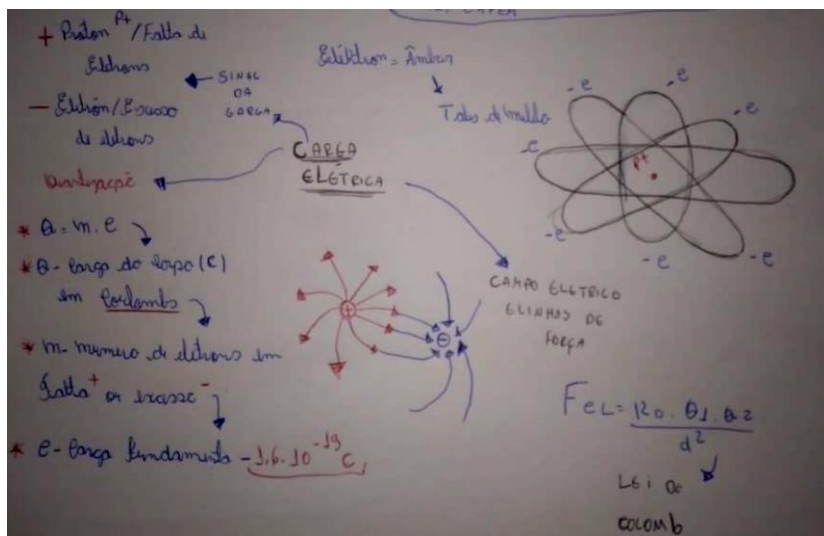 + Próton P+/Falta de
Elétrons
- Elétrón/Excesso
de elétrons
SINAL
DA
CARGA
Elétktron = Âmbar
CARGA
ELÉTRICA
* Q = n. e
* Q - Carga do corpo (C)
em Coulombs
* n - número de elétrons em
falta + ou excesso -
* e - Carga fundamenta - 1,6. 10 -19 C
-e
-e
-e
-e
-e
-e
-e
P+
+
-
CAMPO ELÉTRICO
E LINHAS DE
FORÇA
FeL = K0 . Q1 . Q2
d2
LEI DE
COLOMB